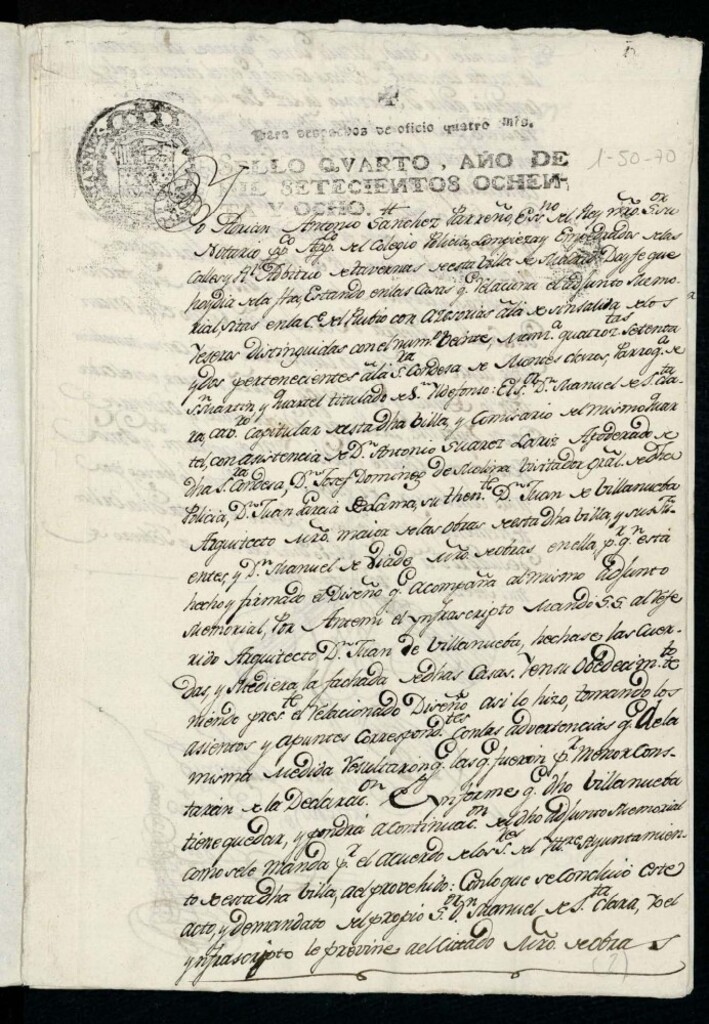 Para despachos de oficio quatro mrs.
SELLO QVARTO, AÑO DE
MIL SETECIENTOS OCHEN-
TA Y OCHO.
1-50-70
Yo Adrian Antonio Sanchez Parreño, Essno del Rey nro. Sor su
Notario pco del Colegio Policia, Limpieza y Empedrados de las
Calles y Arbitrio de tavernas de esta Villa de Madrid: Doy fe que
hoy dia de la fha, Estando en las Casas q.e relaciona el adjunto Memo-
rial, sitas en la C.e del Rubio con Acesorias a la de sin salida de los
Tesoros distinguidas con el num.o Veinte, Manz.a quatroz.tas setenta
y dos pertenecientes a la S.ra Condesa de Montes claros, Parroq.a de
S.n Martin, y Quartel titulado de S.n Ildefonso: El S.or D.n Manuel de S.ta Cla-
ra, Cavo. Capitular de esta dha Villa, y Comisario del mismo Quar-
tel, con asistencia de D.n Antonio Suarez Lariz Apoderado de
dha S.ra Condesa, D.n Josef Doming.z de Molina Visitador Gral. de dha
Policia, D.n Juan Garcia de Lama, su then.te D.n Juan de Villanueba
Arquitecto Mro. maior de las obras de esta dha Villa, y sus Fu-
entes, y D.n Manuel de Viado Mro. de obras en ella p.r q.n está
hecho y firmado el Diseño q.e acompaña al mismo adjunto
Memorial, Por Antemi el ynfrascripto Mandó S.S. al Refe-
rido Arquitecto D.n Juan de Villanueba, hechase las Cuer-
das, y Mediera, la fachada de dhas Casas. Y en su Obedecim.to te-
niendo pres.te el relacionado Diseño asi lo hizo, tomando los
asientos y apuntes correspond.tes con las advertencias q.e de la
misma Medida Resultaron q.e las q.e fueron p.r Menor Cons-
taran de la Declarac.on Informe q.e dho Villanueba
tiene quedar, y pondrá a continuac.on de dho adjunto Memorial
como se le Manda p.r el acuerdo de los S.res del Ill.re Ayuntamien-
to de esta dha Villa, del provehido: Con lo que se Concluió este
acto, y de mandato del propio S.or D.n Manuel de S.ta Clara, Yo el
ynfrascripto le previne al Cittado Mro. de obras
(2)